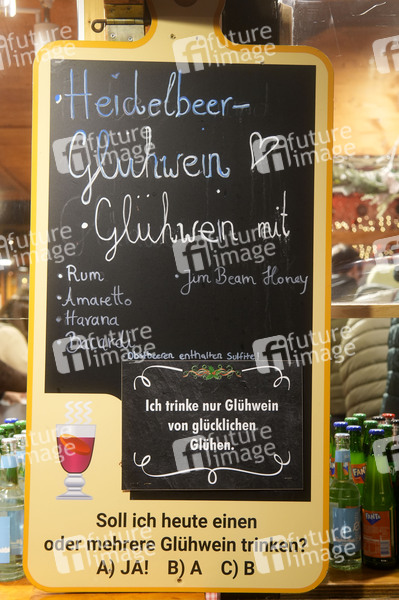 · Heidelbeer-
Glühwein ♡
· Glühwein mit
· Rum
· Jim Beam Honey
· Amaretto
· Havana
· Bacardi
Obstbeeren enthalten Sulfite!
Ich trinke nur Glühwein
von glücklichen
Glühen.
Soll ich heute einen
oder mehrere Glühwein trinken?
A) JA! B) A C) B
FANTA
FANTA
future image